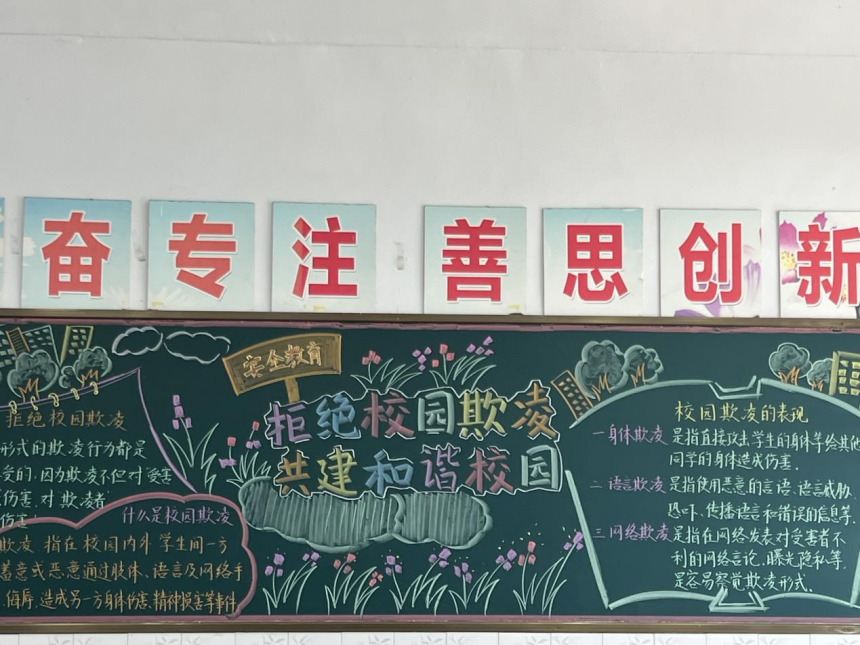 奋 专 注 善 思 创 新
安全教育
拒绝校园欺凌
共建和谐校园
拒绝校园欺凌
形式的欺凌行为都是
受的,因为欺凌不但对受害
伤害,对欺凌者
伤害
什么是校园欺凌
欺凌 指在校园内外学生间一方
蓄意或恶意通过肢体、语言及网络手
侮辱,造成另一方身体伤害,精神损害等事件
校园欺凌的表现
一身体欺凌 是指直接攻击学生的身体并给其他
同学的身体造成伤害.
二语言欺凌 是指使用恶意的言语、语言威胁
恐吓、传播谣言和错误的信息等.
三网络欺凌 是指在网络发表对受害者不
利的网络言论、曝光隐私等,
是容易察觉欺凌形式.